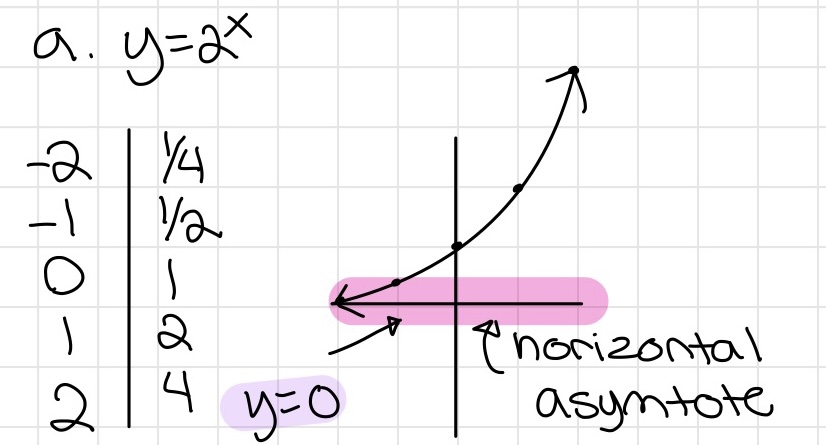 a. y=2^x
-2 | 1/4
-1 | 1/2
0 | 1
1 | 2
2 | 4
y=0
horizontal
asymtote